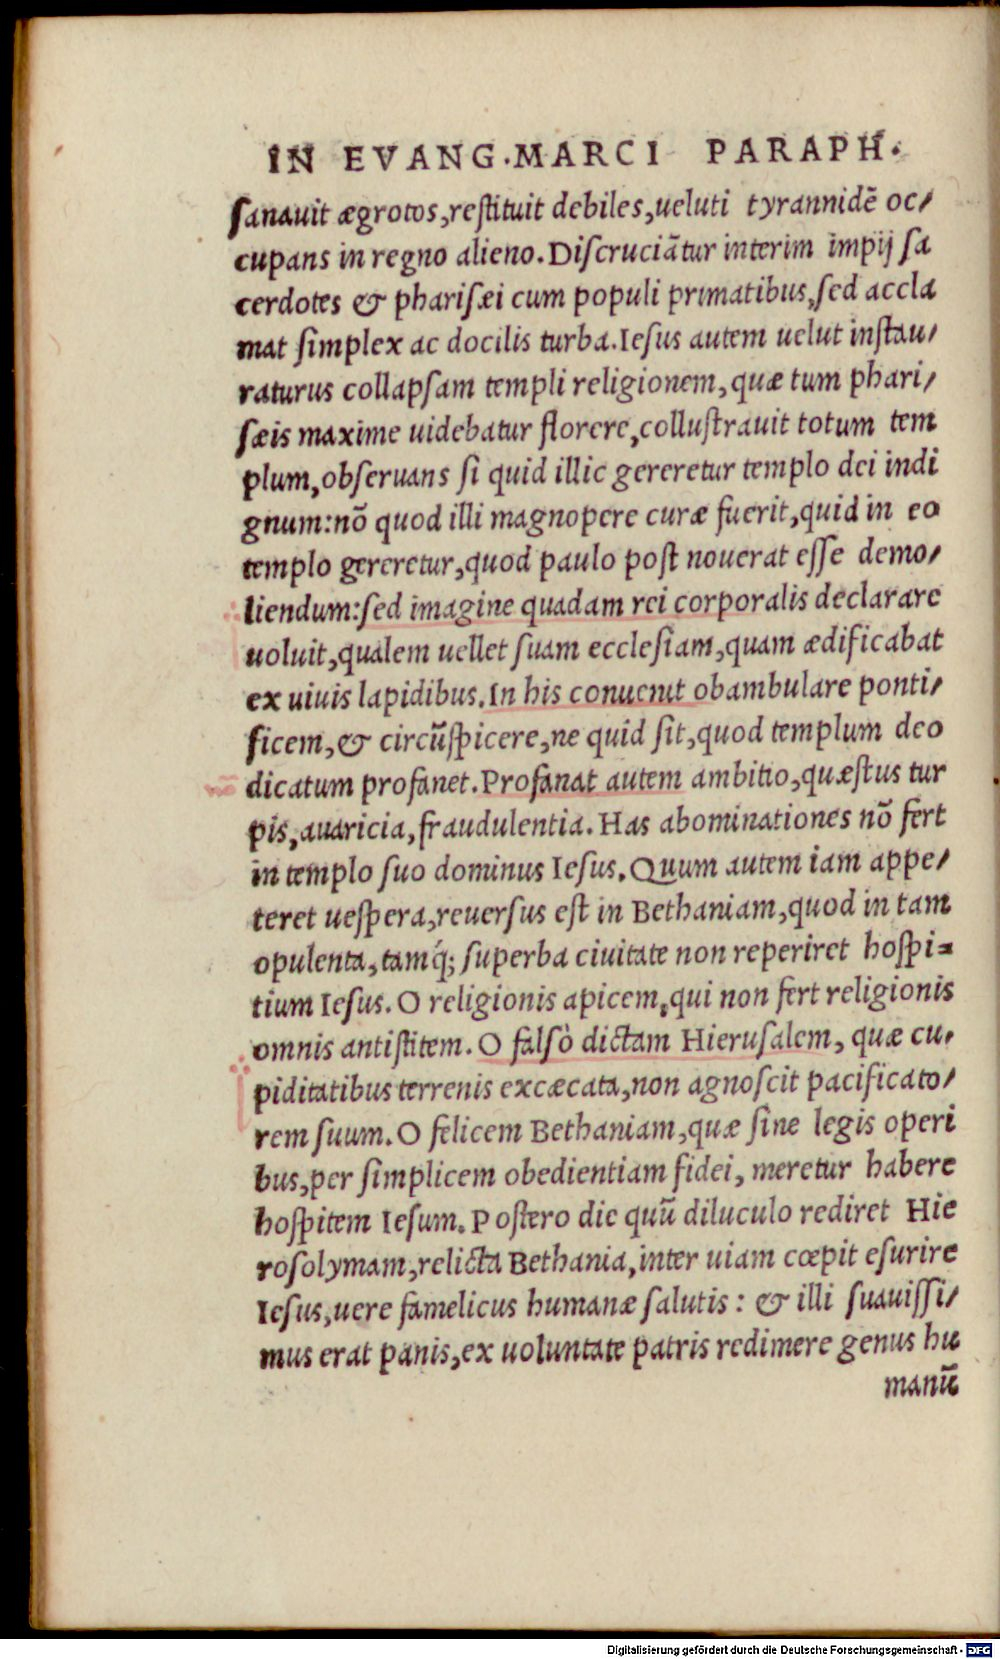 IN EVANG.MARCI PARAPH.
sanauit ægrotos,restituit debiles,ueluti tyrannidē oc/
cupans in regno alieno.Discruciātur interim impij sa
cerdotes & pharisæi cum populi primatibus,sed accla
mat simplex ac docilis turba.Iesus autem uelut instau/
raturus collapsam templi religionem,quæ tum phari/
sæis maxime uidebatur florere,collustrauit totum tem
plum,obseruans si quid illic gereretur templo dei indi
gnum:nō quod illi magnopere curæ fuerit,quid in eo
templo gereretur,quod paulo post nouerat esse demo/
liendum:sed imagine quadam rei corporalis declarare
uoluit,qualem uellet suam ecclesiam,quam ædificabat
ex uiuis lapidibus.In his conuenit obambulare ponti/
ficem,& circūspicere,ne quid sit,quod templum deo
dicatum profanet.Profanat autem ambitio,quæstus tur
pis,auaricia,fraudulentia.Has abominationes nō fert
in templo suo dominus Iesus.Quum autem iam appe/
teret uespera,reuersus est in Bethaniam,quod in tam
opulenta,tamq́; superba ciuitate non reperiret hospi=
tium Iesus.O religionis apicem,qui non fert religionis
omnis antistitem.O falsò dictam Hierusalem, quæ cu/
piditatibus terrenis excæcata,non agnoscit pacificato/
rem suum.O felicem Bethaniam,quæ sine legis operi
bus,per simplicem obedientiam fidei, meretur habere
hospitem Iesum.Postero die quū diluculo rediret Hie
rosolymam,relicta Bethania,inter uiam cœpit esurire
Iesus,uere famelicus humanæ salutis: & illi suauissi/
mus erat panis,ex uoluntate patris redimere genus hu
manū
Digitalisierung gefördert durch die Deutsche Forschungsgemeinschaft - DFG